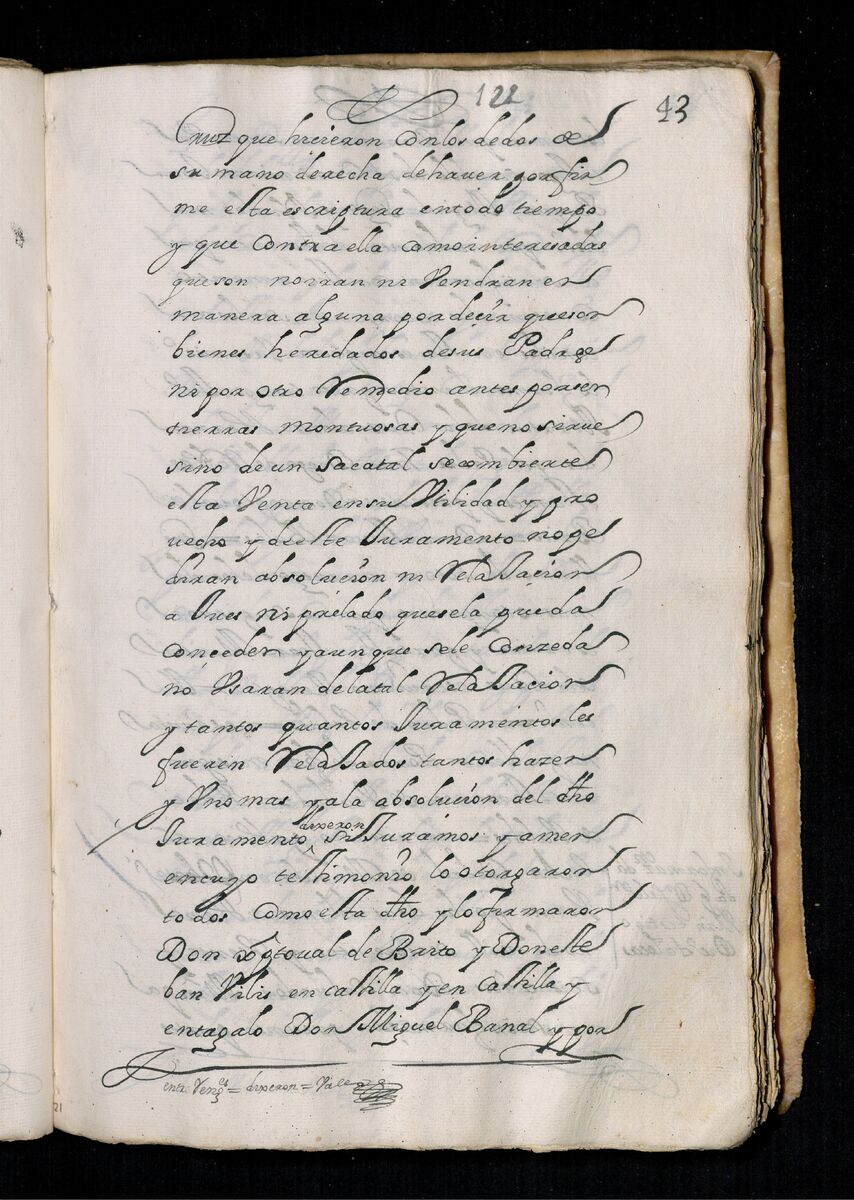 122
43
Cruz que hicieron con los dedos de
su mano derecha de haver por fir
me esta escriptura en todo tiempo
y que contra ella como interesadas
que son no iran ni Vendran en
manera alguna por decir que son
bienes heredados de sus Padres
ni por otro Remedio antes por ser
tierras montuosas y que no sirve
sino de un sacatal se combierte
esta Venta en su Utilidad y pro
vecho y de este Juramento no pe
diran absolucion ni Relaxacion
a Jues ni prelado que se la pueda
conceder y aunque se le Conzeda
no Usaran de la tal Relaxacion
y tantos quantos Juramentos les
fueren Relaxados tantos hazen
y Uno mas y a la absolucion del dho
Juramento dixeron si Juramos y amen
en cuyo testimonio lo otorgaron
todos como esta dho y lo firmaron
Don Xptoval de Brito y Don este
ban Vilis en castilla y en Castilla y
en tagalo Don Miguel Banal y por
entr. Reng.es = dixeron = Vale
21